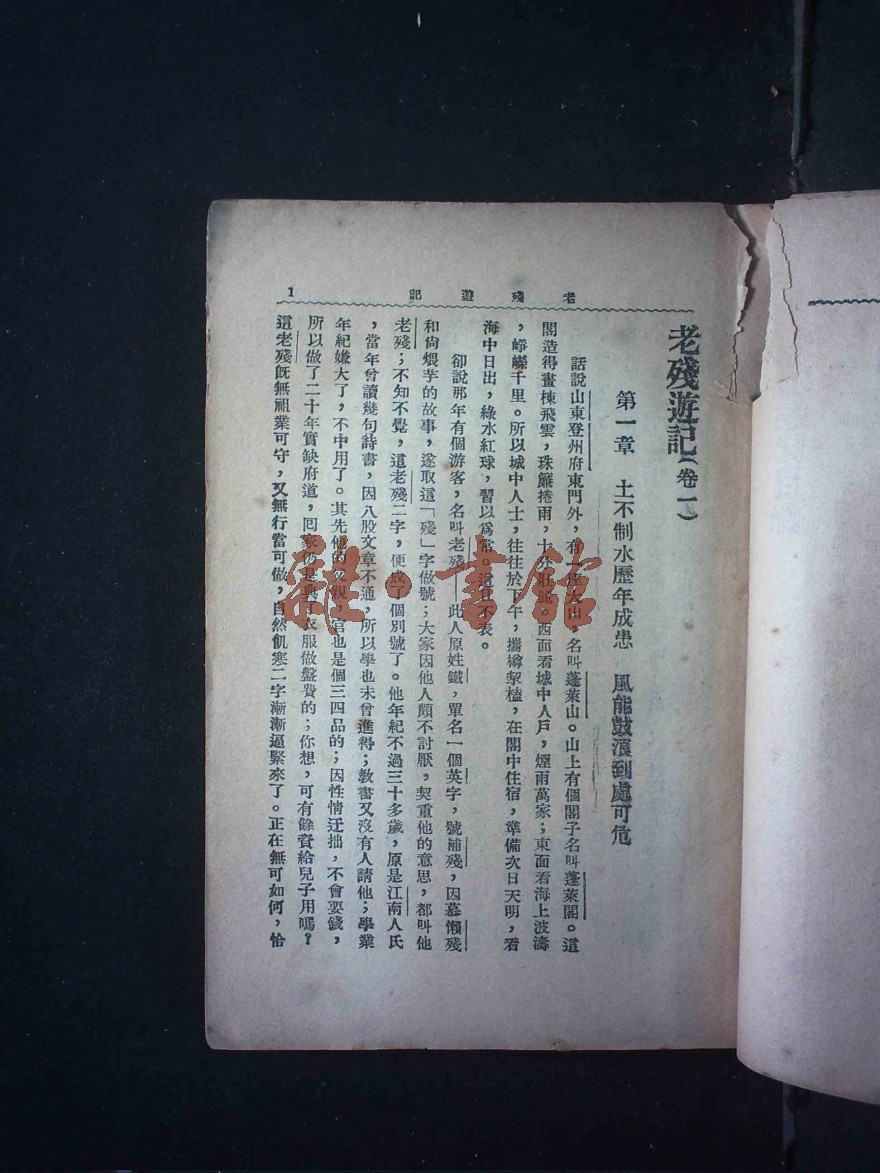 老殘遊記
1
老殘遊記(卷一)
第一章　土不制水歷年成患　風能鼓浪到處可危
話說山東登州府東門外，有一座大山，名叫蓬萊山。山上有個閣子名叫蓬萊閣。這
閣造得畫棟飛雲，珠簾捲雨，十分壯麗。西面看城中人戶，煙雨萬家；東面看海上波濤
，崢嶸千里。所以城中人士，往往於下午，攜樽挈榼，在閣中住宿，準備次日天明，看
海中日出，綠水紅球，習以爲常。這且不表。
卻說那年有個游客，名叫老殘——此人原姓鐵，單名一個英字，號補殘，因慕懶殘
和尙煨芋的故事，遂取這「殘」字做號；大家因他人頗不討厭，契重他的意思，都叫他
老殘；不知不覺，這老殘二字，便成了個別號了。他年紀不過三十多歲，原是江南人氏
，當年曾讀幾句詩書，因八股文章不通，所以學也未曾進得；敎書又沒有人請他；學業
年紀嫌大了，不中用了。其先他的父親，官也是個三四品的；因性情迂拙，不會要錢，
所以做了二十年實缺府道，囘家仍是典了衣服做盤費的；你想，可有餘資給兒子用嗎？
這老殘旣無祖業可守，又無行當可做，自然飢寒二字漸漸逼緊來了。正在無可如何，恰
雜·書館